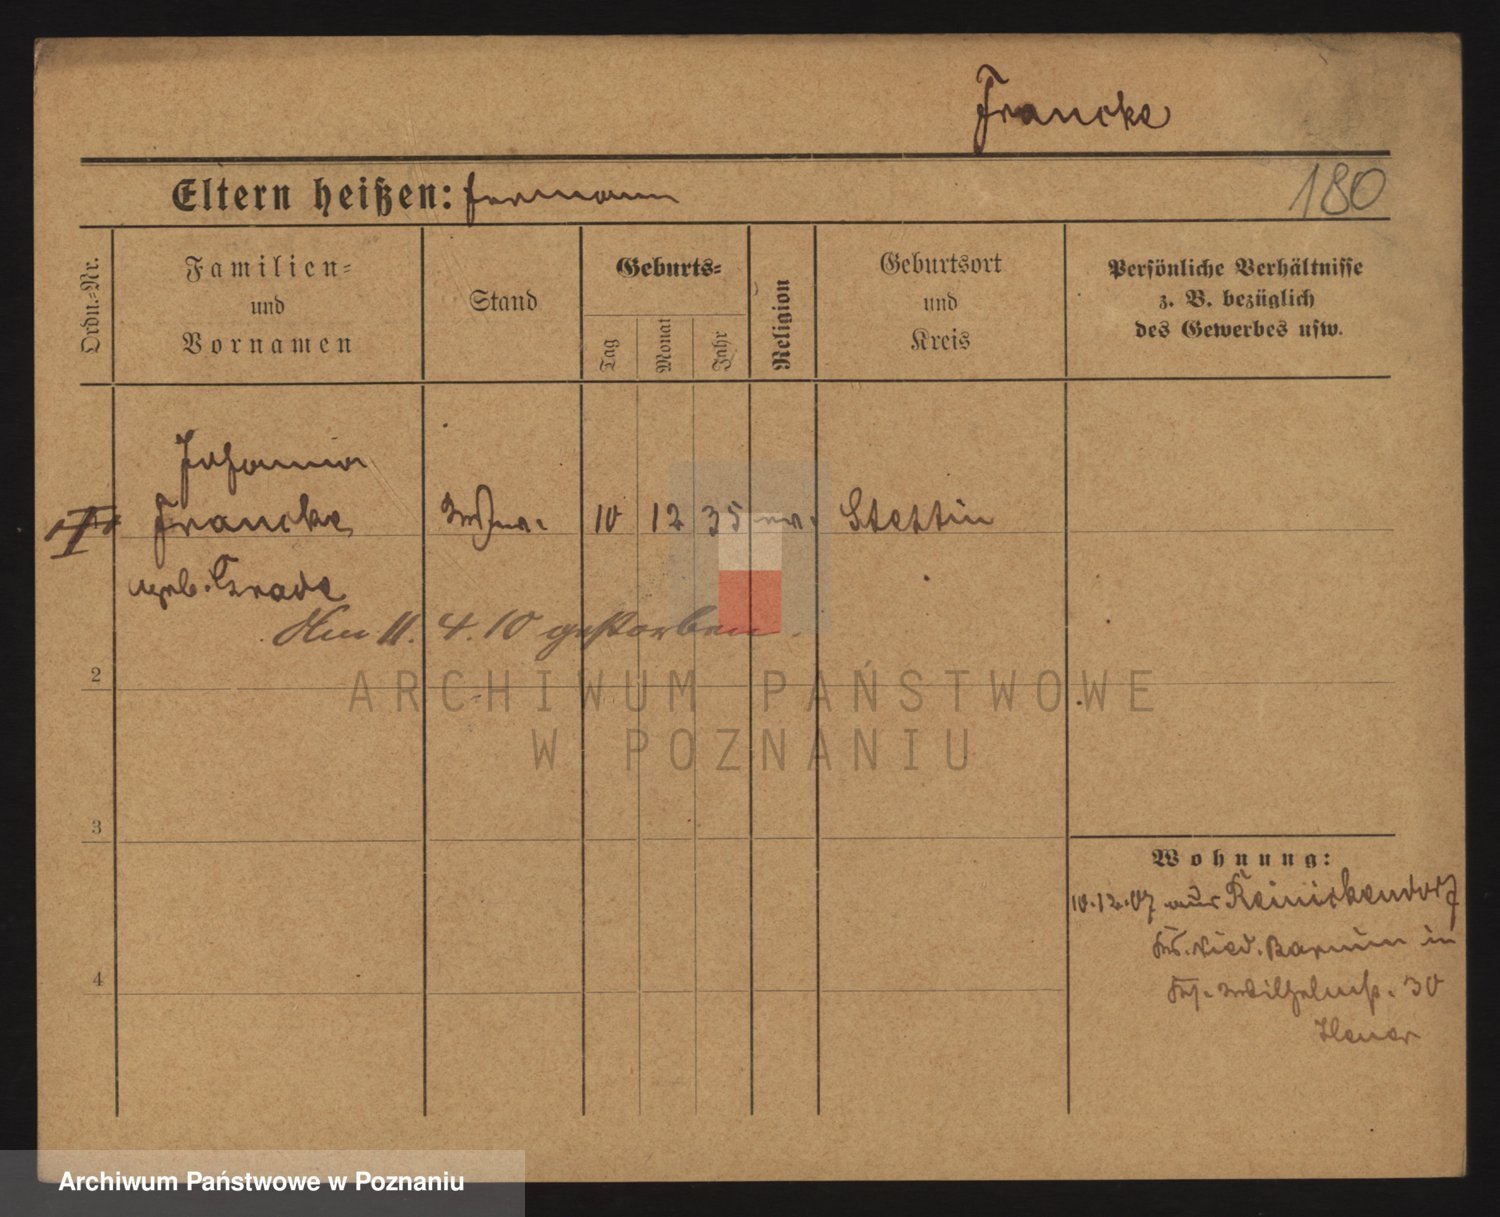 Francke
Eltern heißen: Hermann
180
Ordn.-Nr.
Familien-
und
Vornamen
Stand
Geburts-
Tag
Monat
Jahr
Religion
Geburtsort
und
Kreis
Persönliche Verhältnisse
z. B. bezüglich
des Gewerbes usw.
Johanna
Francke 10 12 35 ev. Stettin
geb.
Am 11. 4. 10 gestorben.
2
3
4
Wohnung:
10.12.07 aus Reinickendorf
Kr. Nied. Barnim in
Wilhelmstr. 30
ARCHIWUM PAŃSTWOWE
W POZNANIU
Archiwum Państwowe w Poznaniu